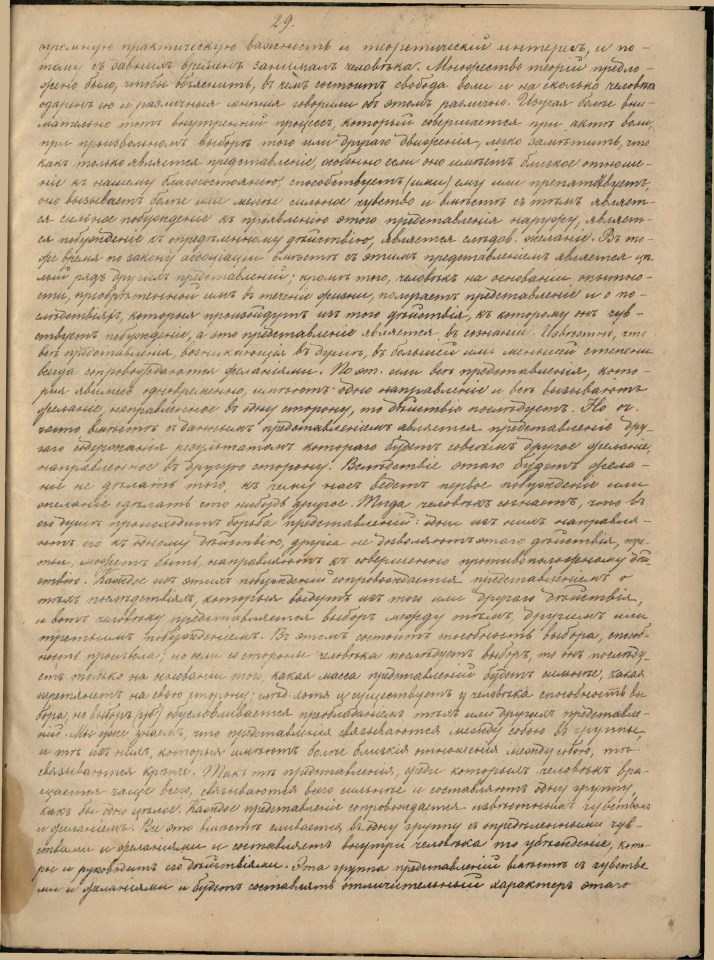 29.
огромную практическую важность и теоретическій интересъ, и по-
тому съ давнихъ временъ занималъ человѣка. Множество теорій предло-
жено было, чтобы объяснить, въ чемъ состоитъ свобода воли и на сколько человѣкъ
одаренъ ею и различныя мнѣнія говорили объ этомъ различно. Изучая болѣе вни-
мательно тотъ внутренній процессъ, который совершается при актѣ воли,
при произвольномъ выборѣ того или другаго движенія, легко замѣтить, что
какъ только является представленіе, особенно если оно имѣетъ близкое отноше-
ніе къ нашему благосостоянію, способствуетъ (или) ему или препятствуетъ,
оно вызываетъ болѣе или менѣе сильное чувство и вмѣстѣ съ тѣмъ являет-
ся сильное побужденіе къ проявленію этого представленія наружу, являет-
ся побужденіе къ опредѣленному дѣйствію, является слѣдов. желаніе. Въ то-
же время по закону ассоціаціи вмѣстѣ съ этимъ представленіемъ является цѣ-
лый рядъ другихъ представленій; кромѣ того, человѣкъ на основаніи опытно-
сти, пріобрѣтенной имъ въ теченіе жизни, получаетъ представленіе и о по-
слѣдствіяхъ, которыя произойдутъ изъ того дѣйствія, къ которому онъ чув-
ствуетъ побужденіе, а это представленіе является въ сознаніи. Извѣстно, что
всѣ представленія, возникающія въ душѣ, въ большей или меньшей степени
всегда сопровождаются желаніями. Поэт. или всѣ представленія, кото-
рыя явились одновременно, имѣютъ одно направленіе и всѣ вызываютъ
желаніе, направленное въ одну сторону, то дѣйствіе послѣдуетъ. Но оч.
часто вмѣстѣ съ даннымъ представленіемъ является представленіе дру-
гаго содержанія результатомъ котораго будетъ совсѣмъ другое желаніе,
направленное въ другую сторону. Вслѣдствіе этого будетъ жела-
ніе не дѣлать того, къ чему насъ ведетъ первое побужденіе или
желаніе сдѣлать что нибудь другое. Тогда человѣкъ сознаетъ, что въ
его душѣ происходитъ борьба представленій: одни изъ нихъ направля-
ютъ его къ одному дѣйствію, другія не дозволяютъ этого дѣйствія, тре-
тьи, можетъ быть, направляютъ къ совершенно противоположному дѣй-
ствію. Каждое изъ этихъ побужденій сопровождается представленіемъ о
тѣхъ послѣдствіяхъ, которыя выйдутъ изъ того или другаго дѣйствія,
и вотъ человѣку представляется выборъ между тѣмъ, другимъ или
третьимъ побужденіемъ. Въ этомъ состоитъ способность выбора, способ-
ность произвола; но если со стороны человѣка послѣдуетъ выборъ, то онъ послѣду-
етъ только на основаніи того, какая масса представленій будетъ сильнѣе, какая
перетянетъ на свою сторону; слѣд. хотя и существуетъ у человѣка способность вы-
бора, но выборъ обусловливается преобладаніемъ тѣхъ или другихъ представле-
ній. Мы уже знаемъ, что представленія связываются между собою въ группы,
и тѣ изъ нихъ, которыя имѣютъ болѣе близкія отношенія между собою, тѣ
связываются крѣпче. Такъ тѣ представленія, среди которыхъ человѣкъ вра-
щается чаще всего, связываются всего сильнѣе и составляютъ одну группу,
какъ бы одно цѣлое. Каждое представленіе сопровождается извѣстнымъ чувствомъ
и желаніемъ. Все это вмѣстѣ сливается въ одну группу съ опредѣленными чув-
ствами и желаніями и составляетъ внутри человѣка то убѣжденіе, кото-
рое и руководитъ его дѣйствіями. Эта группа представленій вмѣстѣ съ чувства-
ми и желаніями и будетъ составлять отличительный характеръ этого